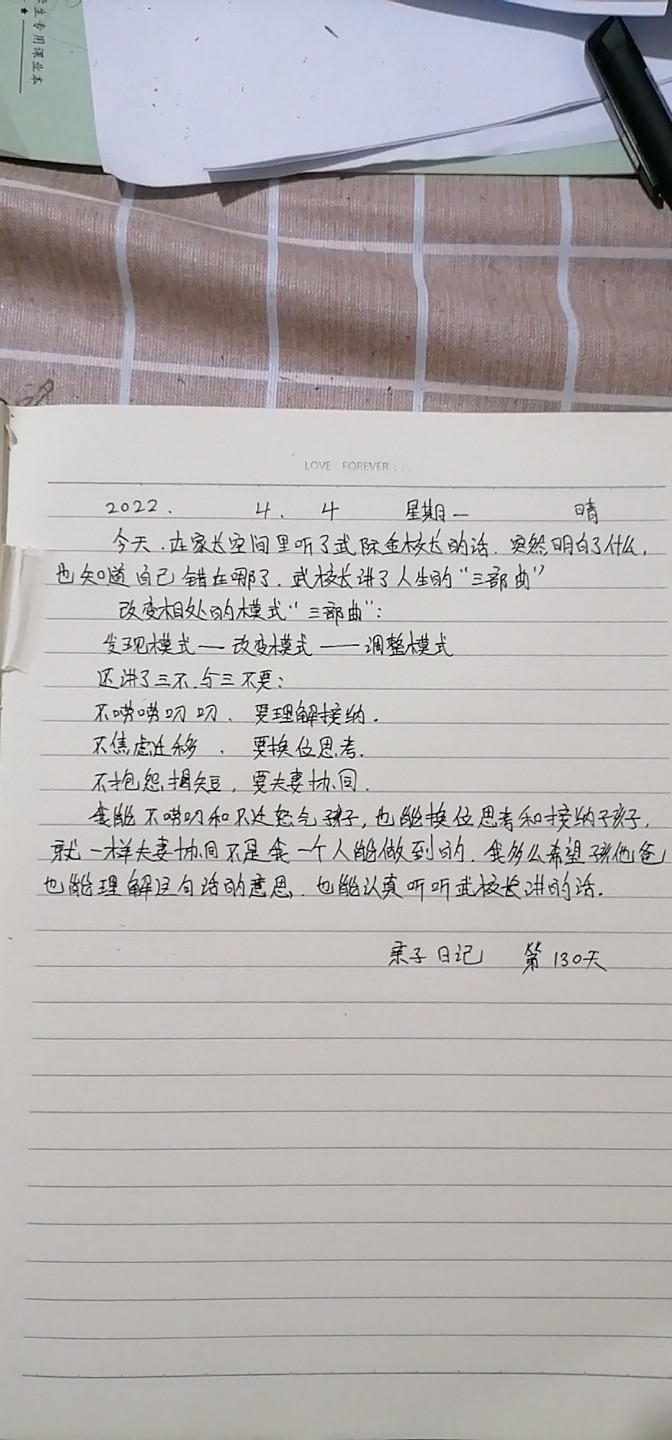 生专用课业本
LOVE FOREVER...
2022. 4. 4 星期一 晴
今天.在家长空间里听了武际金校长的话.突然明白了什么,
也知道自己错在哪了.武校长讲了人生的“三部曲”
改变相处的模式“三部曲”:
发现模式—改变模式——调整模式
还讲了三不.与三不要:
不唠唠叨叨. 要理解接纳.
不焦虑迁移. 要换位思考.
不抱怨揭短, 要夫妻协同.
我能不唠叨和不迁怒气孩子,也能换位思考和接纳孑孩子.
就一样夫妻协同不是我一个人能做到的.我多么希望孩他爸
也能理解这句话的意思.也能认真听听武校长讲的话.
亲子日记 第130天